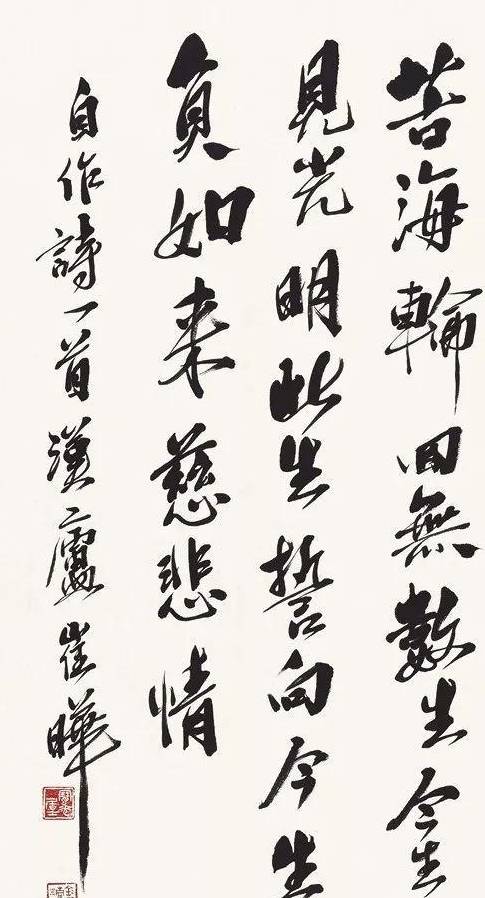 苦海輪回無數生今生
見光明此生誓向今生
負如来慈悲情
自作詩一首漢廬崔曄